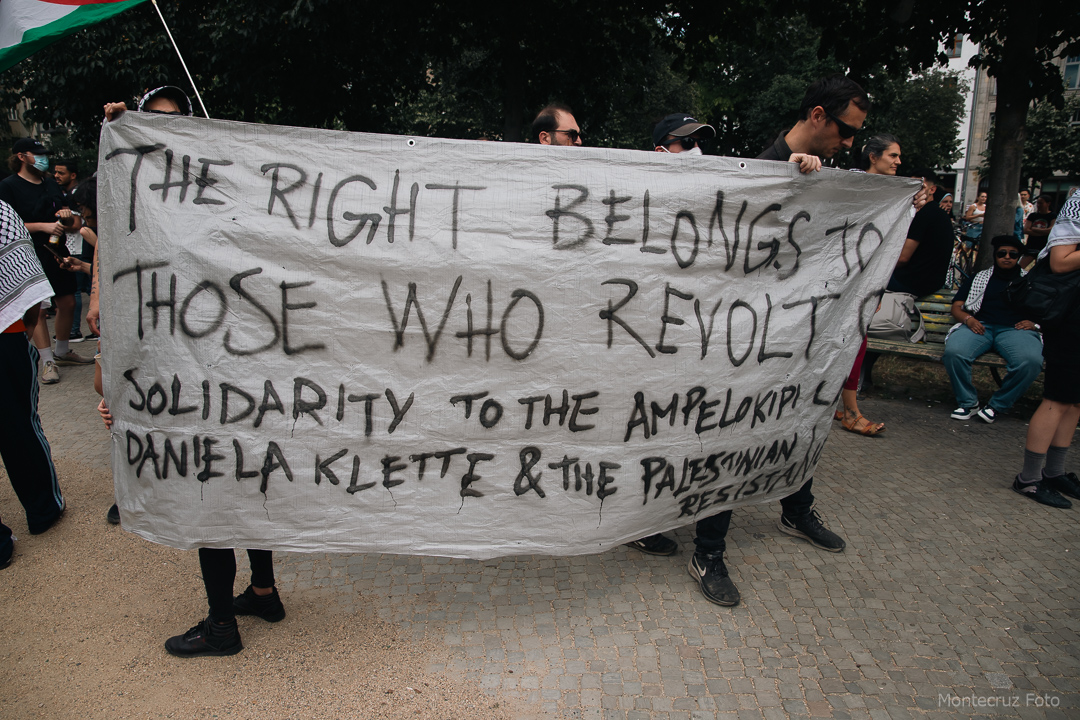 THE RIGHT BELONGS TO
THOSE WHO REVOLT
SOLIDARITY TO THE AMPELOKIPI
DANIELA KLETTE & THE PALESTINIAN
Montecruz Foto